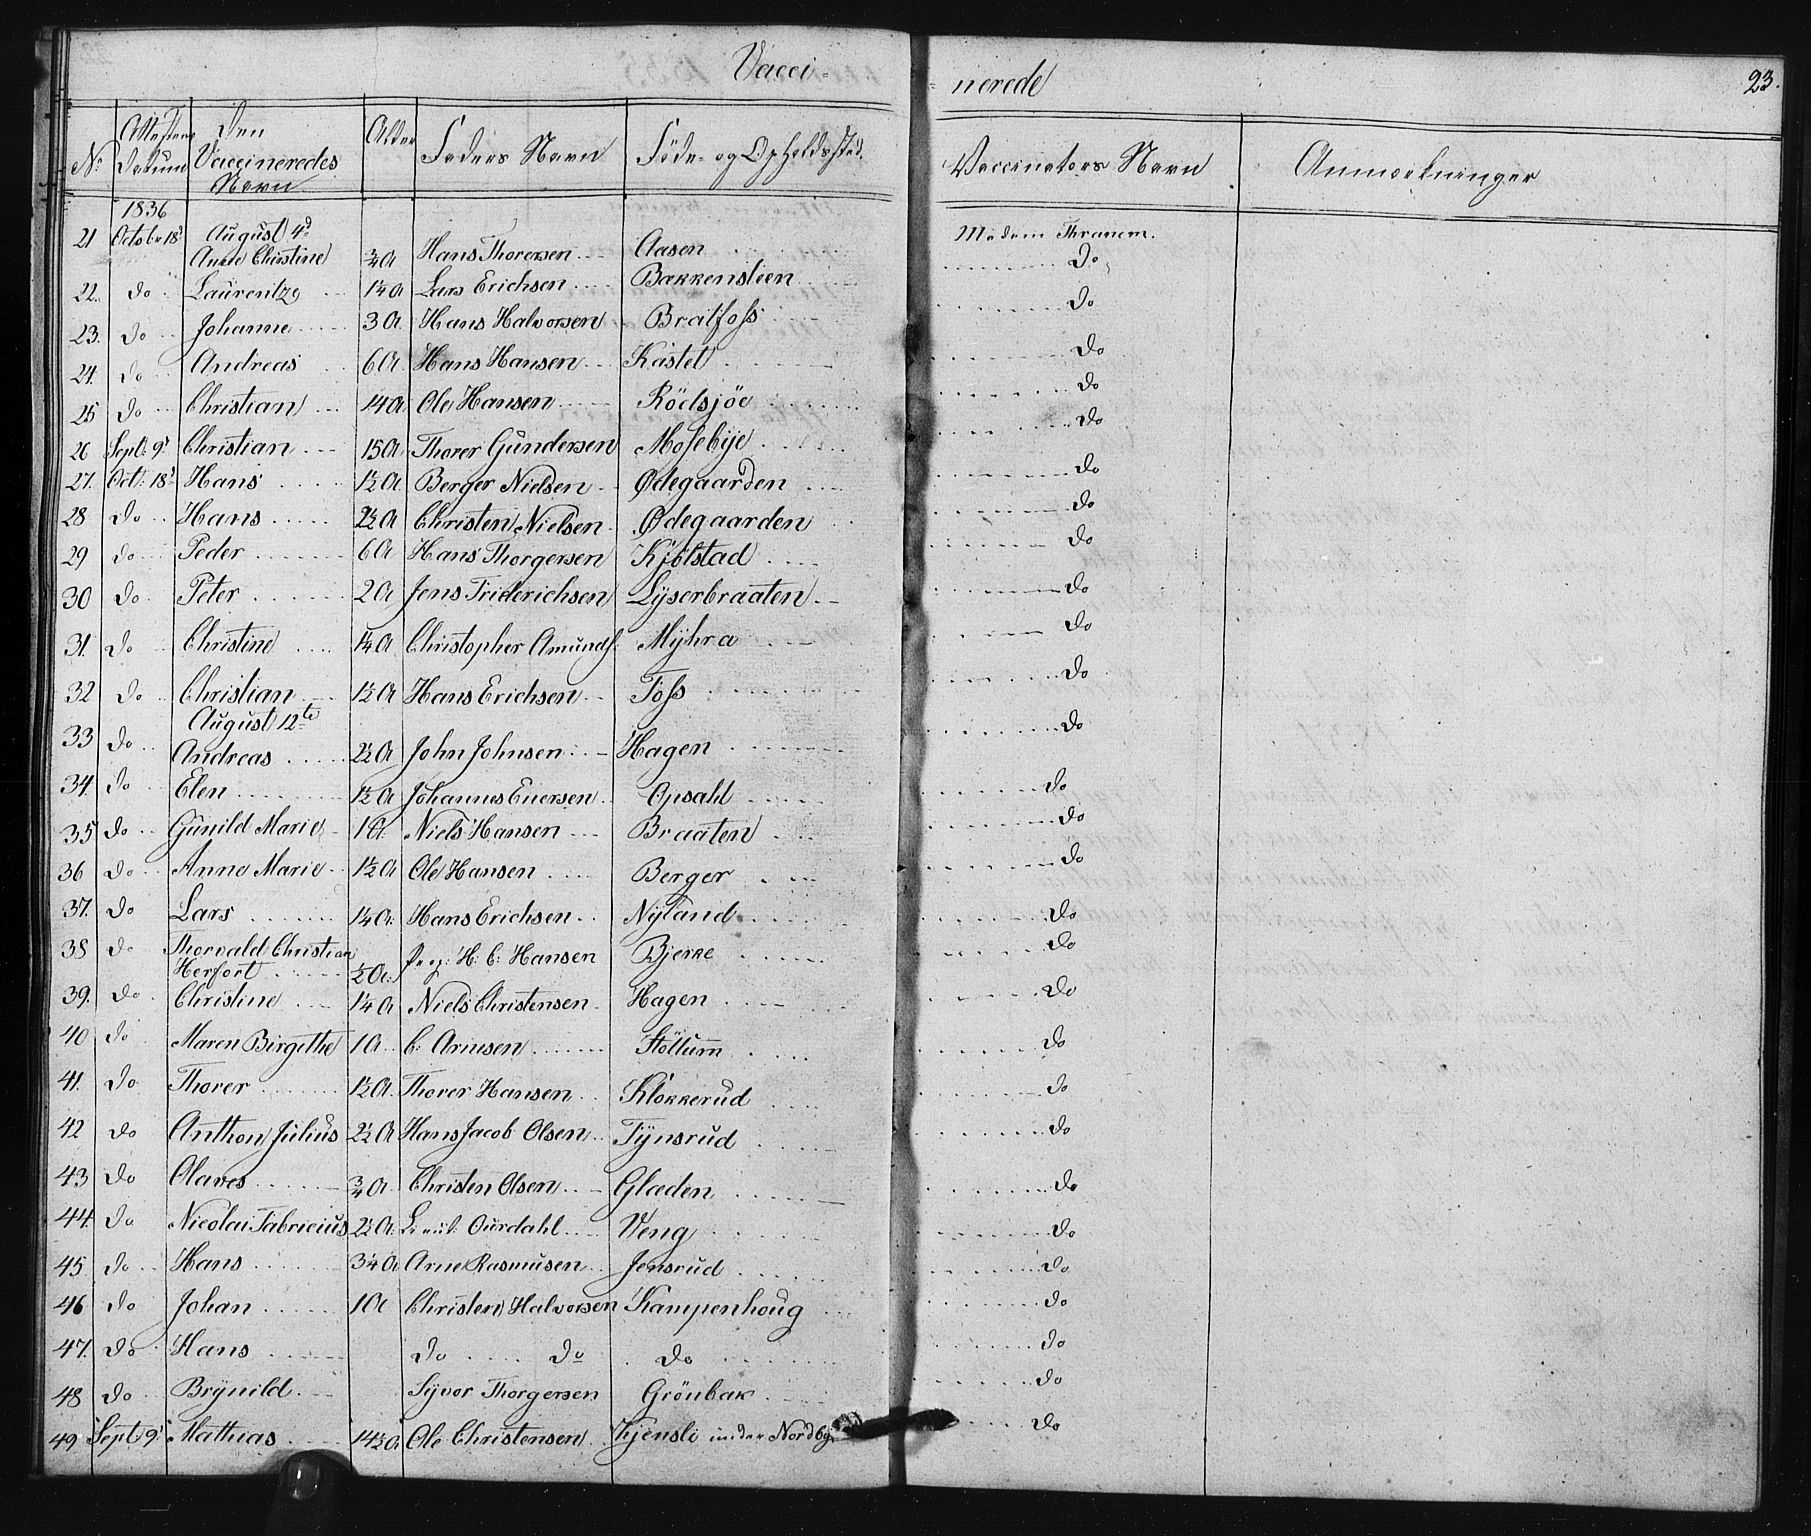 Vacci- nerede 23.
No Attestens Datum Den Vaccineredes Navn Alder Faders Navn Föde- og Opholdssted. Vaccinators Navn Anmærkninger
1836
August 4d
21 Octobr 18d Anne Christine 3/4 A Hans Thoresen Aasen Madam Thranem. Do
22. do Laurentze 1 1/4 A Lars Erichsen Bakkensteen Do
23. do Johanne 3 A Hans Halvorsen Bratfoss Do
24. do Andreas 6 A Hans Hansen Kastet do
25 do Christian 14 A Ole Hansen Rödsjöe do
26 Sept: 9d Christian 15 A Thorer Gundersen Mosebÿe do
27. Oct: 18d Hans 1 1/2 A Berger Nielsen Ødegaarden do
28 do Hans 2 1/2 A Christen Nielsen Ødegaarden do
29 do Peder 6 A Hans Thorgersen Kjölstad do
30 do Peter 2 A Jens Friderichsen Lÿserbraaten do
31. do Christine 1 1/4 A Christopher Amunds. Mÿhra do
32 do Christian 1 1/2 A Hans Erichsen Foss do
August 12te
33 do Andreas 2 1/2 A John Johnsen Hagen do
34. do Elen 1 1/2 A Johannes Enersen Opsahl do
35 do Gunild Marie 1 A Niels Hansen Braaten do
36 do Anne Marie 1 1/2 A Ole Hansen Berger do
37. do Lars 1 1/4 A: Hans Erichsen Nyland do
38 do Thorvald Christian
Herfort 1/2 A: H: C: Hansen Bjerke do
39. do Christine 1 1/4 A Niels Christensen Hagen do
40 do Maren Birgithe 1 A C: Arnesen Stöttum do
41. do Thorer 1 1/2 A Thorer Hansen Klokkerud do
42 do Anthon Julius 2 1/2 A Hans Jacob Olsen Tÿnsrud do
43 do Olaves 3/4 A Christen Olsen Glæden do
44. do Nicolai Fabricius 2 1/2 A: Ourdahl Veng do
45 do Hans 3 1/4 A Arne Rasmusen Jensrud do
46 do Johan 1 A Christen Halvorsen Kampenhoug do
47. do Hans do do do do
48 do Brÿnild Syvor Thorgersen Grönbak do
49 Sept 9d Mathias 14 1/2 A Ole Christensen Kjensli under Nordby do